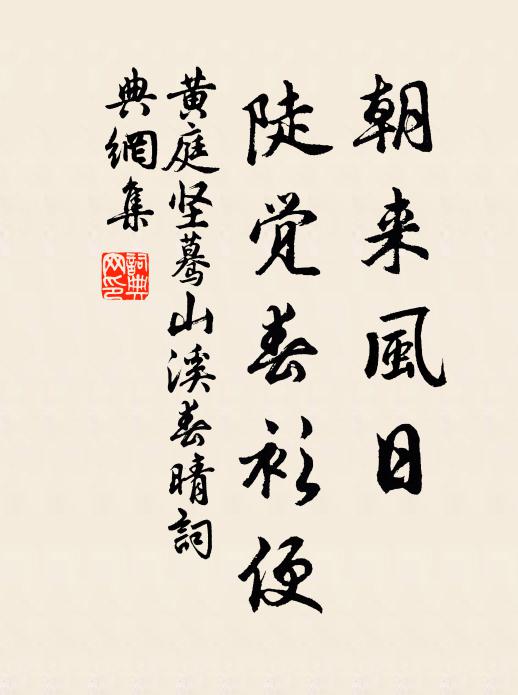 朝来風日
陡觉春衫便
黄庭坚蓦山溪春晴詞
典網集
詞典網印